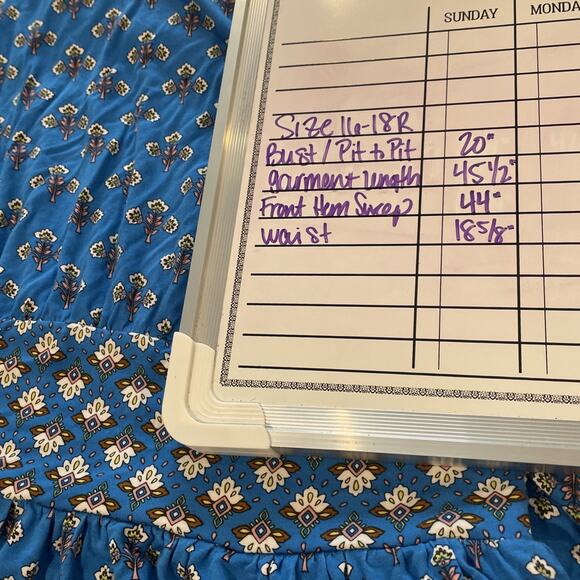 SUNDAY MONDA
Size 16-18R
Bust / Pit to Pit 20"
garment Length 45 1/2"
Front Hem Sweep 44"
Waist 18 5/8"